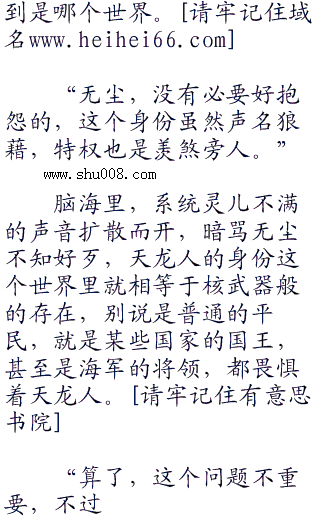 到是哪个世界。[请牢记住域
名www.heihei66.com]
“无尘，没有必要好抱
怨的，这个身份虽然声名狼
藉，特权也是羡煞旁人。”
www.shu008.com
脑海里，系统灵儿不满
的声音扩散而开，暗骂无尘
不知好歹，天龙人的身份这
个世界里就相等于核武器般
的存在，别说是普通的平
民，就是某些国家的国王，
甚至是海军的将领，都畏惧
着天龙人。[请牢记住有意思
书院]
“算了，这个问题不重
要，不过